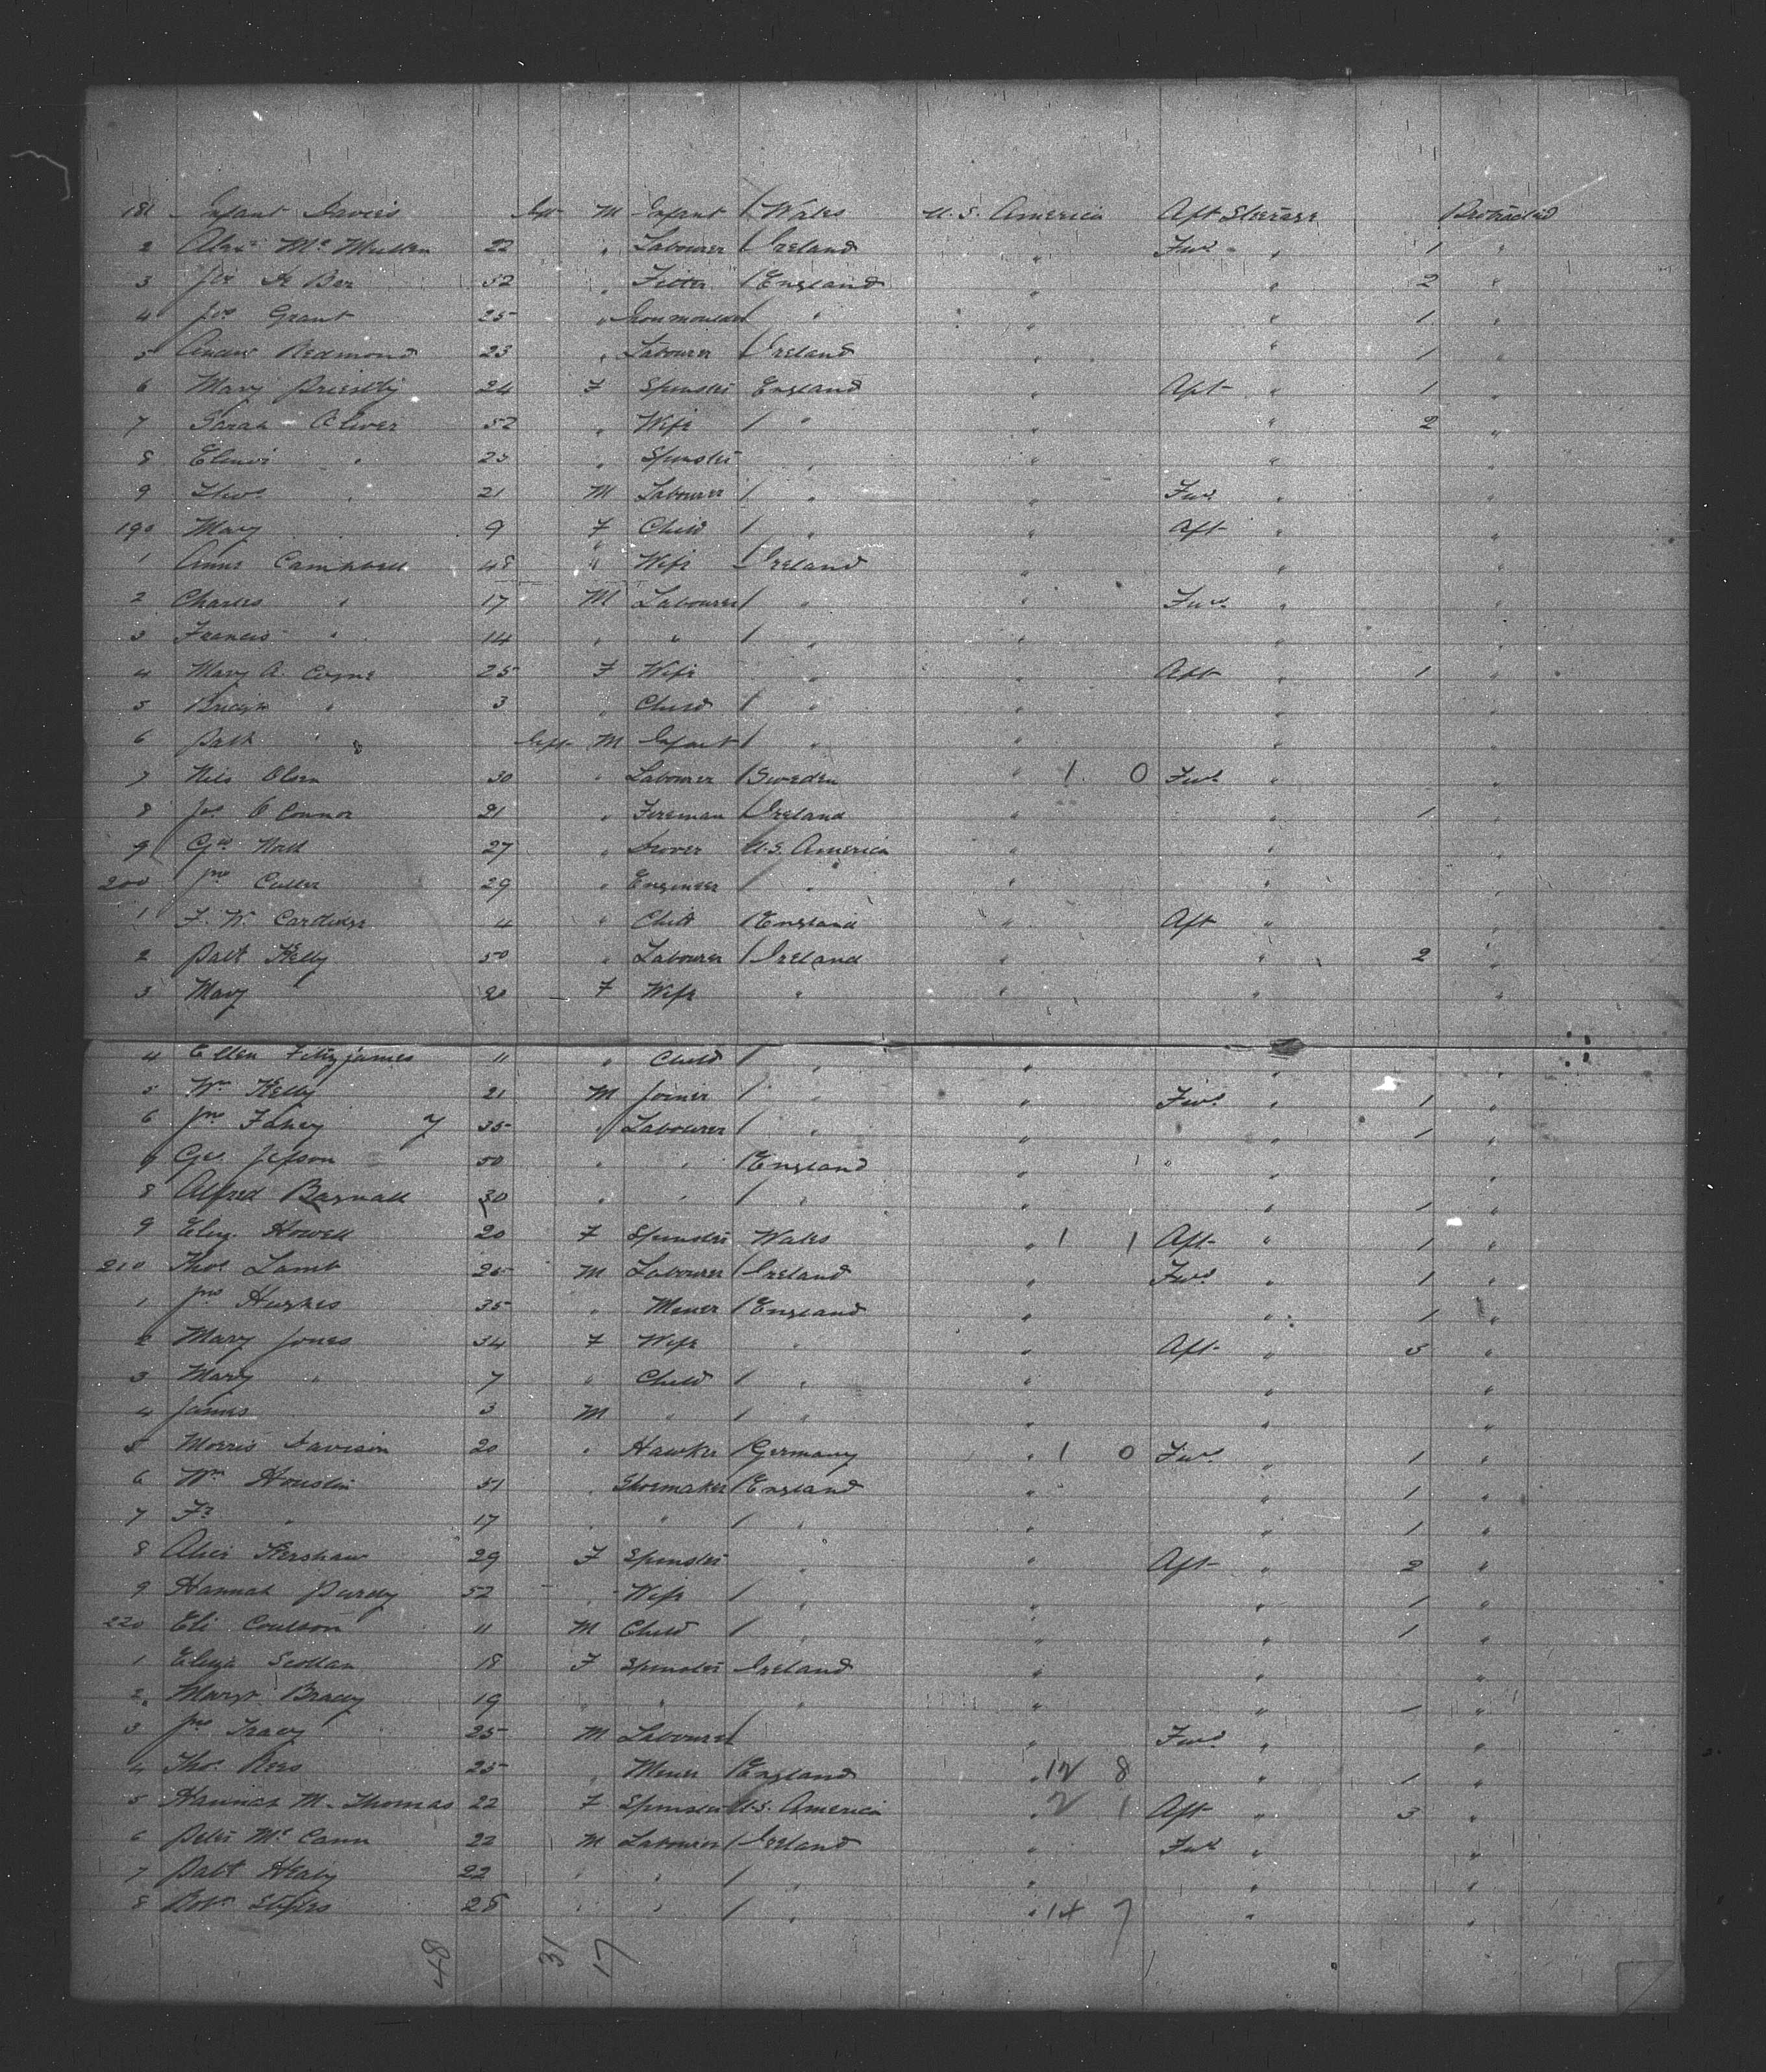 181 Infant Davies M Infant / Wales U.S. America Aft Steerage Protracted
2 Alexr McMullen 22 " Labourer / Ireland " Fwd " 1 "
3 52 " / England " " 2 "
4 Jno Grant 25 " Ironmoulder / " " " 1 "
5 Andw Redmond 23 " Labourer / Ireland " " 1 "
6 Mary Priestly 24 F Spinster England " Aft " 1 "
7 Sarah Oliver 52 " Wife / " " " 2 "
8 " 23 " Spinster " " " "
9 Thos " 21 M Labourer / " " Fwd " "
190 Mary " 9 F Child / " " Aft " "
1 Annie Campbell 48 " Wife / Ireland " " "
2 Charles " 17 M Labourer / " " Fwd " "
3 Francis " 14 " " / " " " "
4 Mary A. Coyne 25 F Wife " " Aft " 1 "
5 Bridgt " 3 " Child / " " " "
6 Patk " M Infant / " " " "
7 Nils Olsen 30 " Labourer / Sweden " 1 0 Fwd " "
8 Jno O'Connor 21 " Fireman / Ireland " " 1 "
9 Geo 27 " Drover U.S. America " " "
200 Jno Culler 29 " Engineer / " " " "
1 F. W. Cartledge 4 " Child / England " Aft " "
2 Patk Kelly 50 " Labourer / Ireland " " 2 "
3 Mary " 20 F Wife " " " "
4 Ellen Fitzjames 11 " Child / " " " "
5 Wm Kelly 21 M Joiner / " " Fwd " 1 "
6 Jno Fahey 35 " Labourer / " " " 1 "
7 Geo. Jepson 50 " " / England " " "
8 Alfred Bagnall 30 " " / " " " 1 "
9 Eliz. Howell 20 F Spinster Wales " 1 1 Aft " 1 "
210 Thos Lamb 25 M Labourer / Ireland " Fwd " 1 "
1 Jno Hughes 35 " Miner / England " " 1 "
2 Mary Jones 34 F Wife " " Aft " 3 "
3 Mary " 7 " Child / " " " "
4 James 3 M " / " " " "
5 Morris Davison 20 " Hawker / Germany " 1 0 Fwd " 1 "
6 Wm Houslin 51 " Shoemaker / England " " 1 "
7 " 17 " " / " " " 1 "
8 Alice Kershaw 29 F Spinster " " Aft " 2 "
9 Hannah Purdy 52 " Wife / " " " 1 "
220 Eli Coulson 11 M Child / " " " 1 "
1 Eliza Scollan 18 F Spinster Ireland " " "
2 Margt Bracey 19 " " " " " 1 "
3 Jno Tracey 25 M Labourer / " Fwd " "
4 Thos Rees 25 " Miner / England " 12 8 " 1 "
5 Hannah M. Thomas 22 F Spinster U.S. America " 2 1 Aft " 3 "
6 Peter McCann 22 M Labourer / Ireland " Fwd " "
7 Patk Healy 22 " " / " " " "
8 Robt 28 " " / " " 14 7 " "
48 31 17